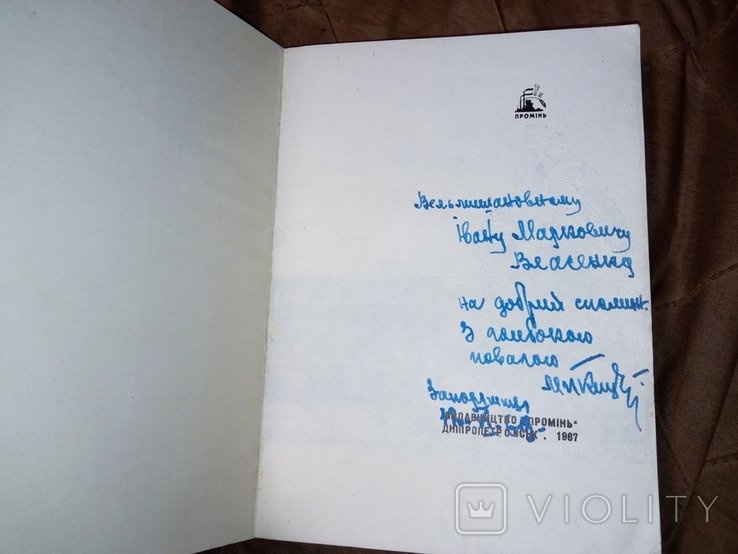 ПРОМІНЬ
Вельмишановному
Івану Марковичу
Власенко
на добрий спомин.
З глибокою
повагою
Запоріжжя,
ВИДАВНИЦТВО «ПРОМІНЬ»
ДНІПРОПЕТРОВСЬК . 1967
VIOLITY